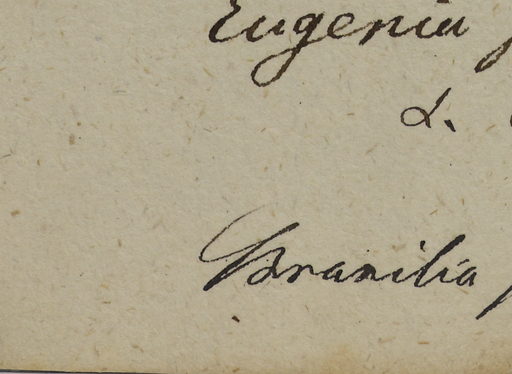 Eugenia
α.
Brasilia